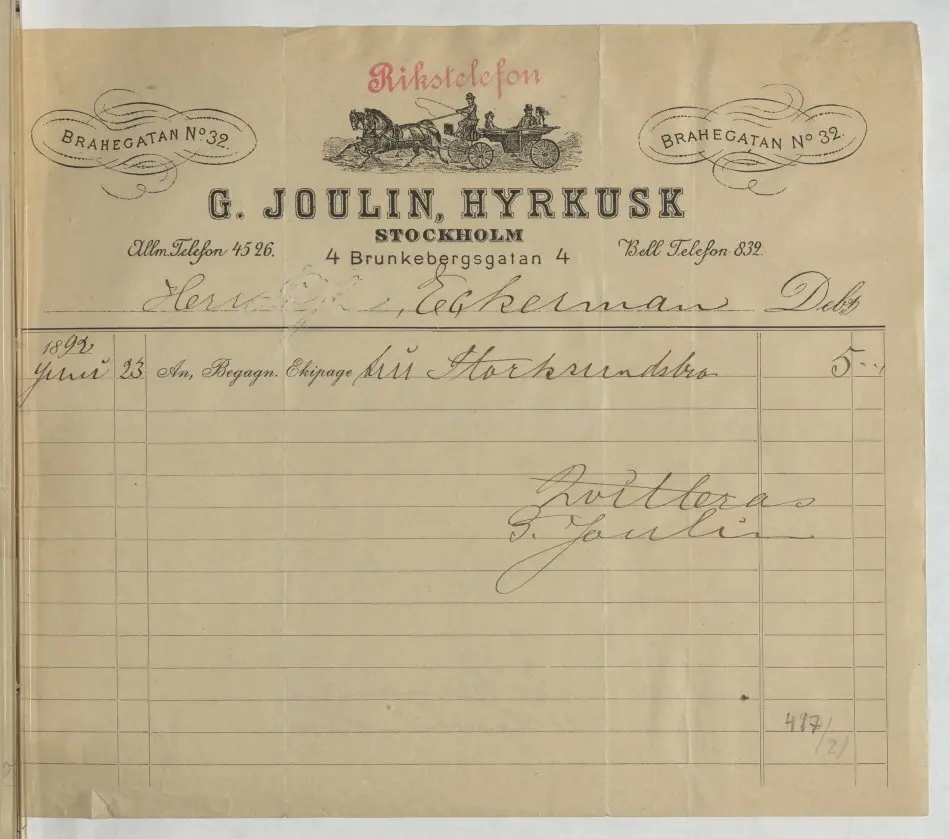 Rikstelefon
BRAHEGATAN No 32.
BRAHEGATAN No 32.
G. JOULIN, HYRKUSK
STOCKHOLM
Allm. Telefon 45 26.
4 Brunkebergsgatan 4
Bell Telefon 832.
Herr Eckerman Debt
1892
Juni 23 An, Begagn. Ekipage till Storksundsbro 5 --
Qvitteras
G. Joulin
497/21